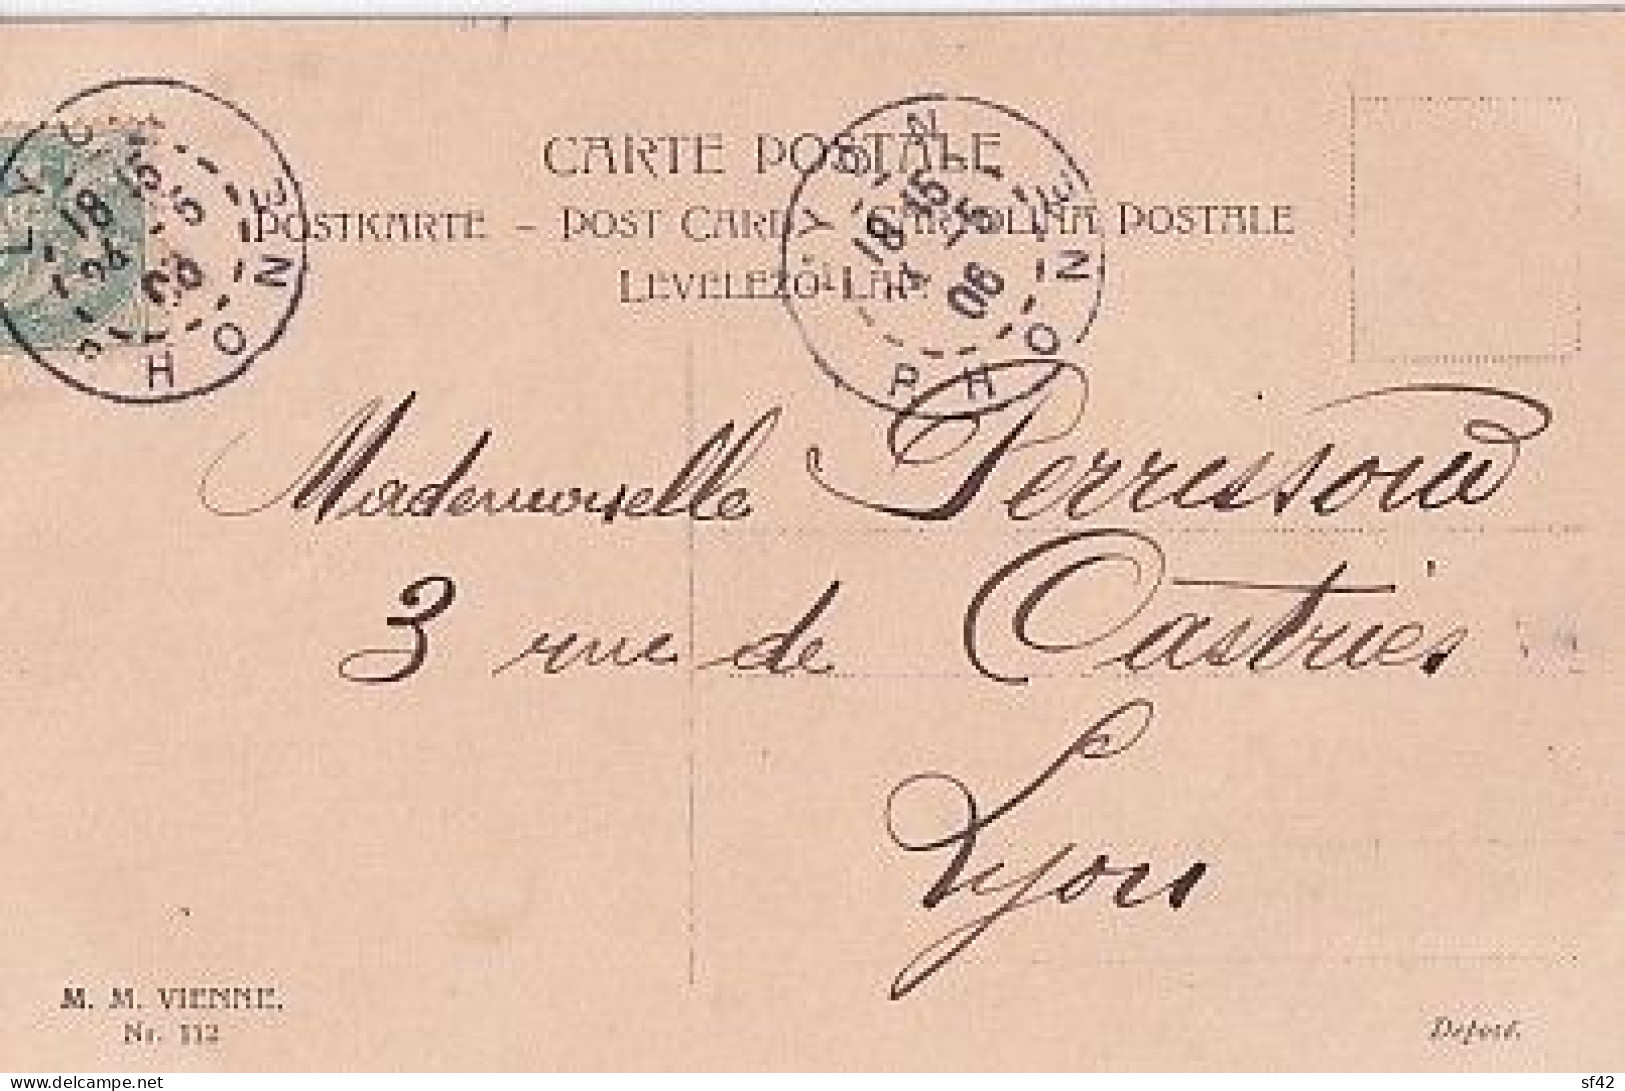 CARTE POSTALE
POSTKARTE – POST CARD – CARTOLINA POSTALE
LEVELEZŐ-LAP.
LYON RHONE
18 15
24 - 5
06
LYON RHONE
18 15
5
06
Mademoiselle Perrissoud
3 rue de Castries
Lyon
M. M. VIENNE.
Nr. 112
Deposé.
delcampe.net
sf42